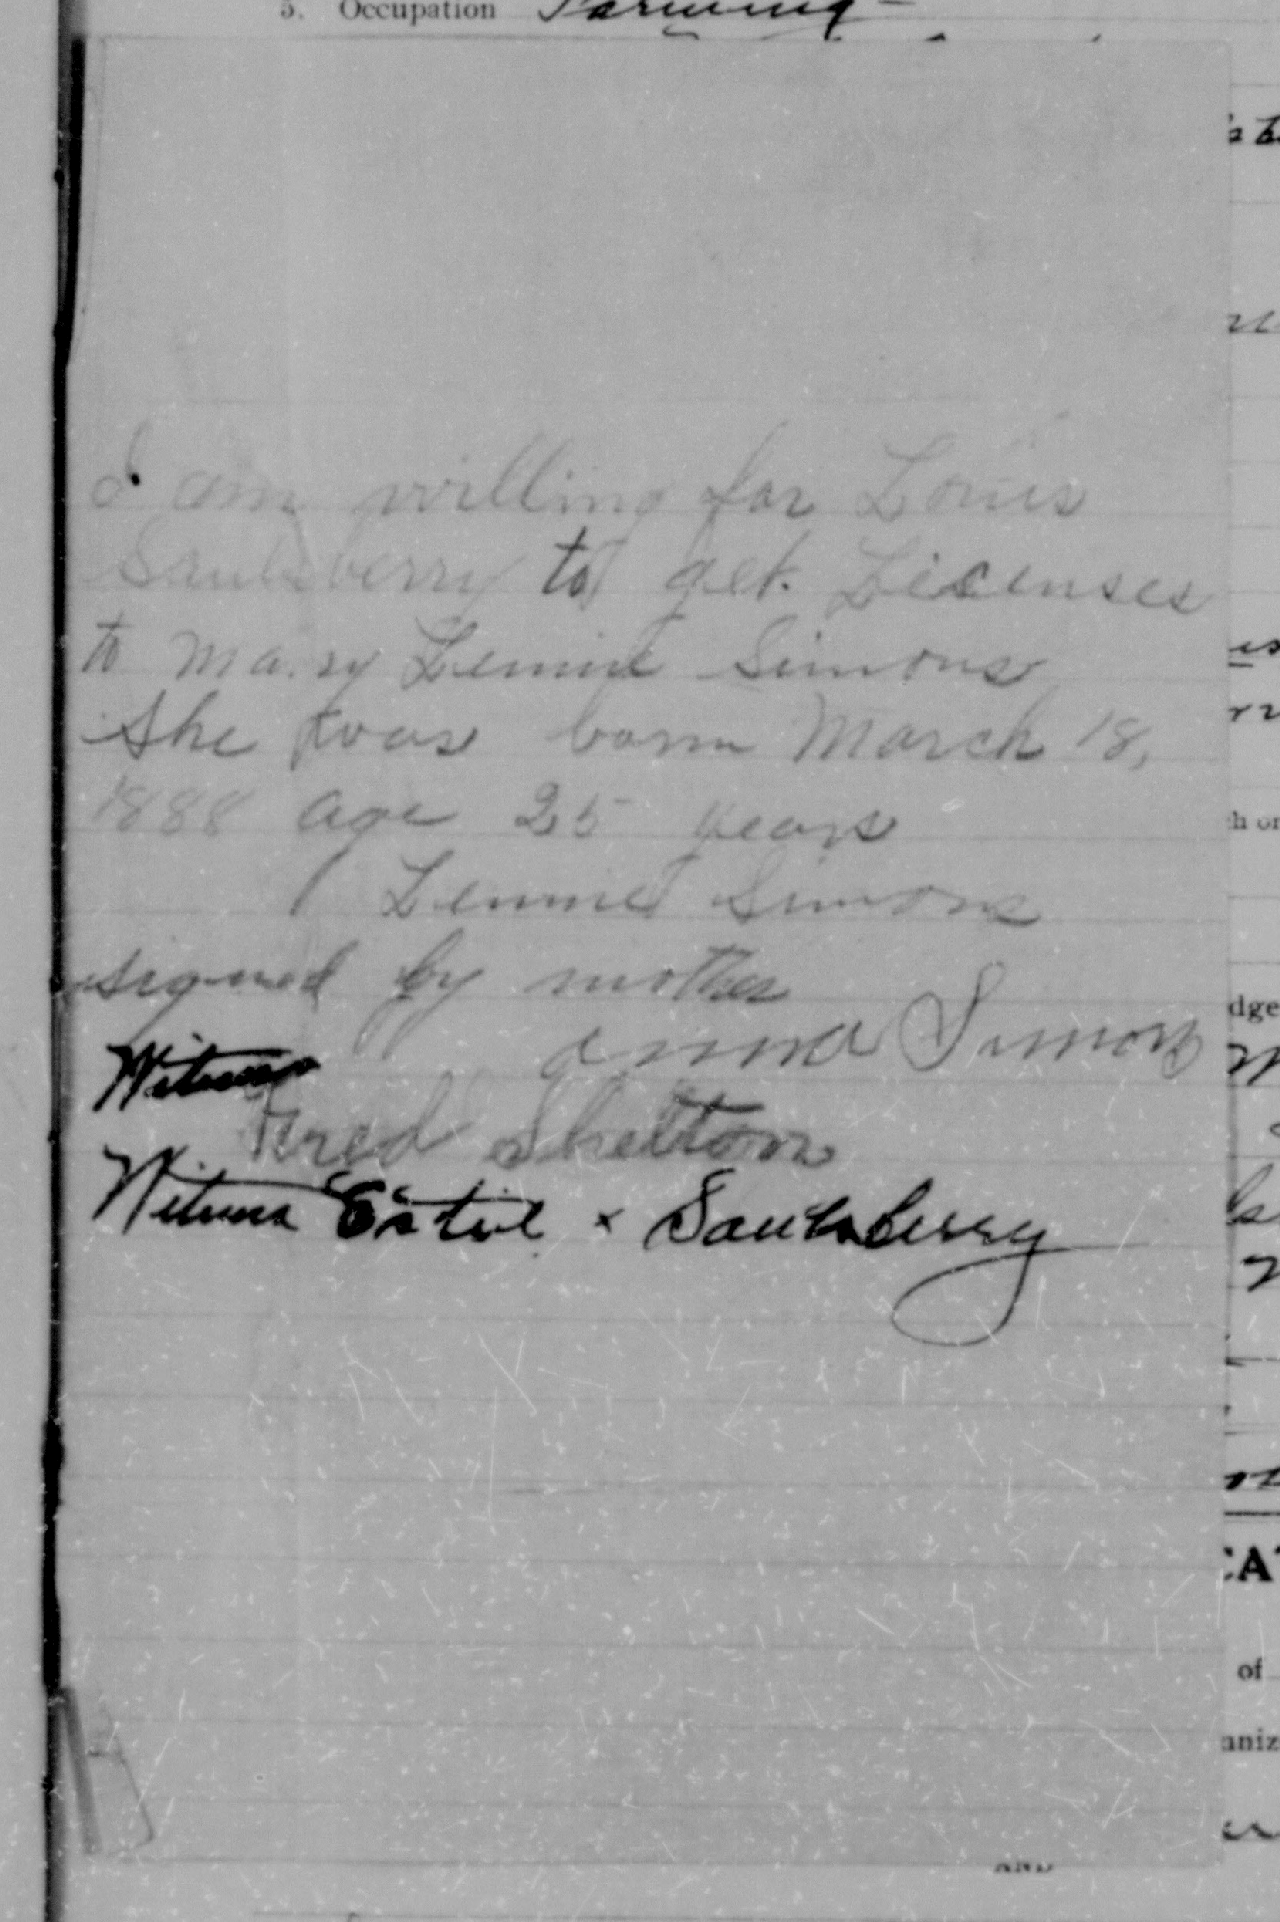 5. Occupation Farming
I am willing for Louis
Saulsberry to get Licenses
to Mary Lennie Simons
She was born March 18,
1888 age 25 years
Lennie Simons
signed by mother
anna Simons
Witness
Fred Shelton
Witness Estil x Saulsberry
h or
dge
CAT
of
aniz
AND